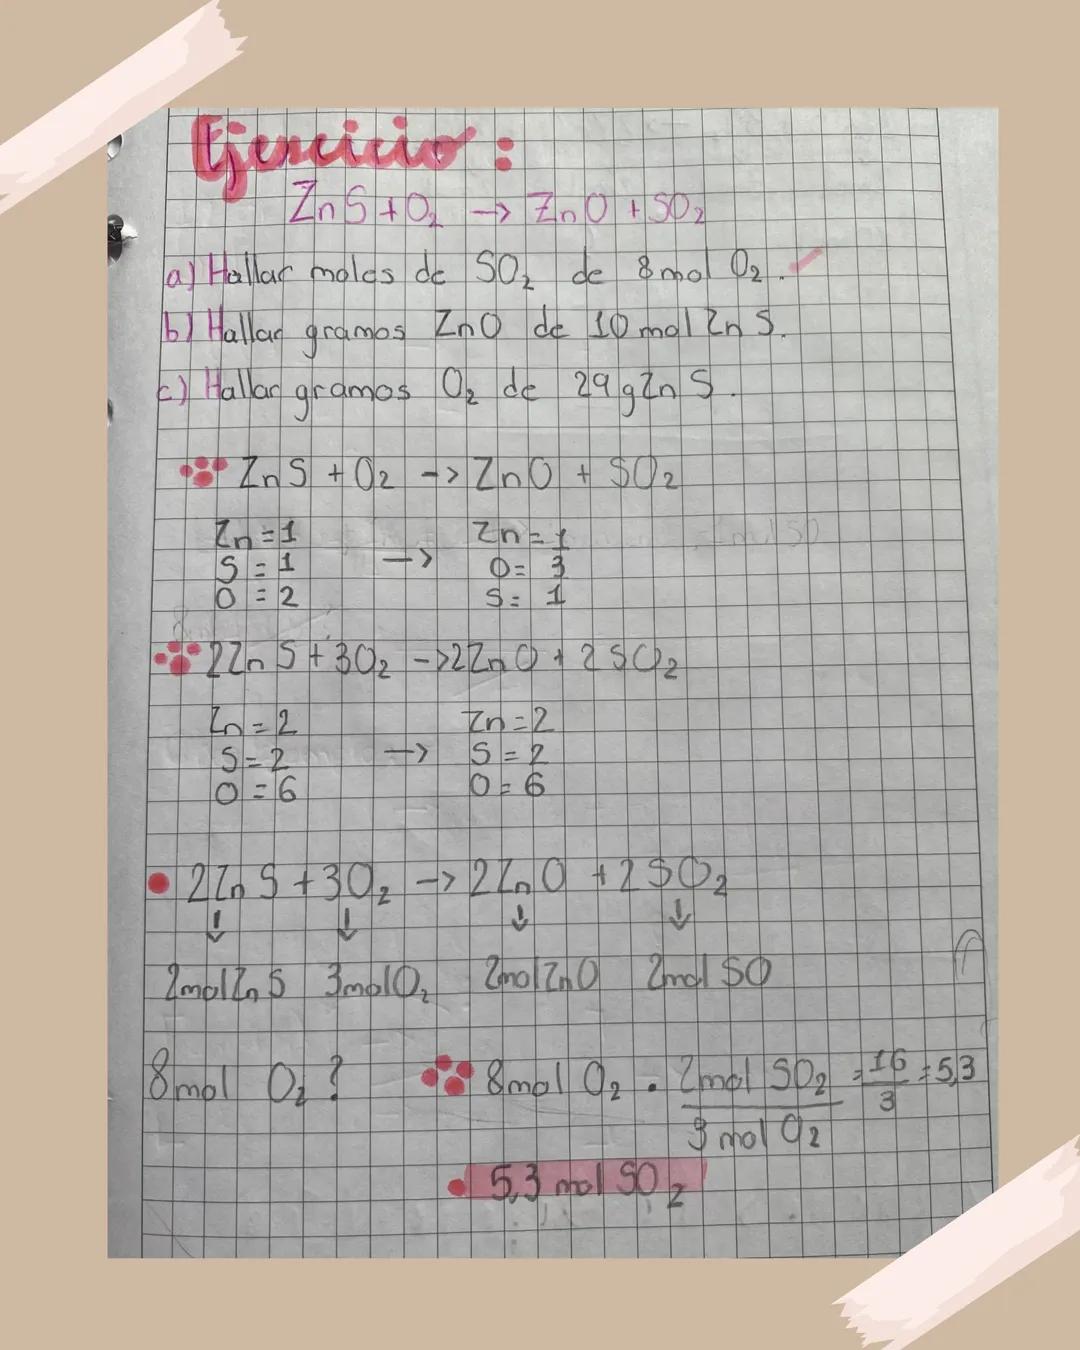 Ejercicio:
ZnS + O₂ → ZnO + SO₂
a) Hallar moles de SO₂ de 8 mol O₂.
b) Hallar gramos ZnO de 10 mol ZnS.
c) Hallar gramos O₂ de 29 g ZnS.
ZnS + O₂ -> ZnO + SO₂
Zn = 1 Zn = 1
S = 1 -> O = 3
O = 2 S = 1
2ZnS + 3O₂ -> 2ZnO + 2SO₂
Zn = 2 Zn = 2
S = 2 -> S = 2
O = 6 O = 6
2ZnS + 3O₂ -> 2ZnO + 2SO₂
↓ ↓ ↓ ↓
2mol ZnS 3mol O₂ 2mol ZnO 2mol SO
8mol O₂? 8mol O₂ . 2mol SO₂ = 16 = 5,3
3 mol O₂ 3
5,3 mol SO₂